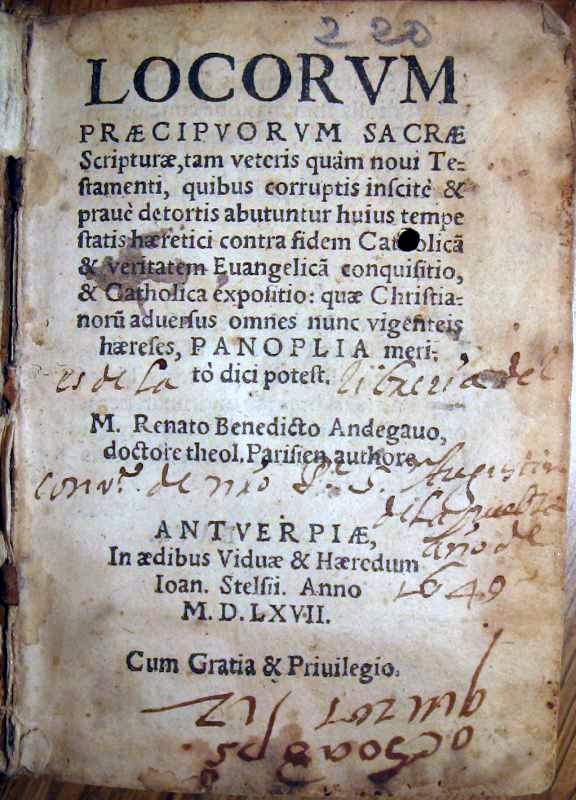 220
LOCORVM
PRÆCIPVORVM SACRÆ
Scripturæ, tam veteris quàm noui Te-
stamenti, quibus corruptis inscitè &
prauè detortis abutuntur huius tempe
statis hæretici contra fidem Catholicã
& veritatem Euangelicã conquisitio,
& Catholica expositio: quæ Christia-
norũ aduersus omnes nunc vigenteis
hæreses, PANOPLIA meri-
tò dici potest.
es de la libreria del
M. Renato Benedicto Andegauo,
doctore theol. Parisien. authore
conv.to de nro P.e S. Augustin
de la puebla
año de
1649
ANTVERPIÆ,
In ædibus Viduæ & Hæredum
Ioan. Stelsii. Anno
M. D. LXVII.
Cum Gratia & Priuilegio.